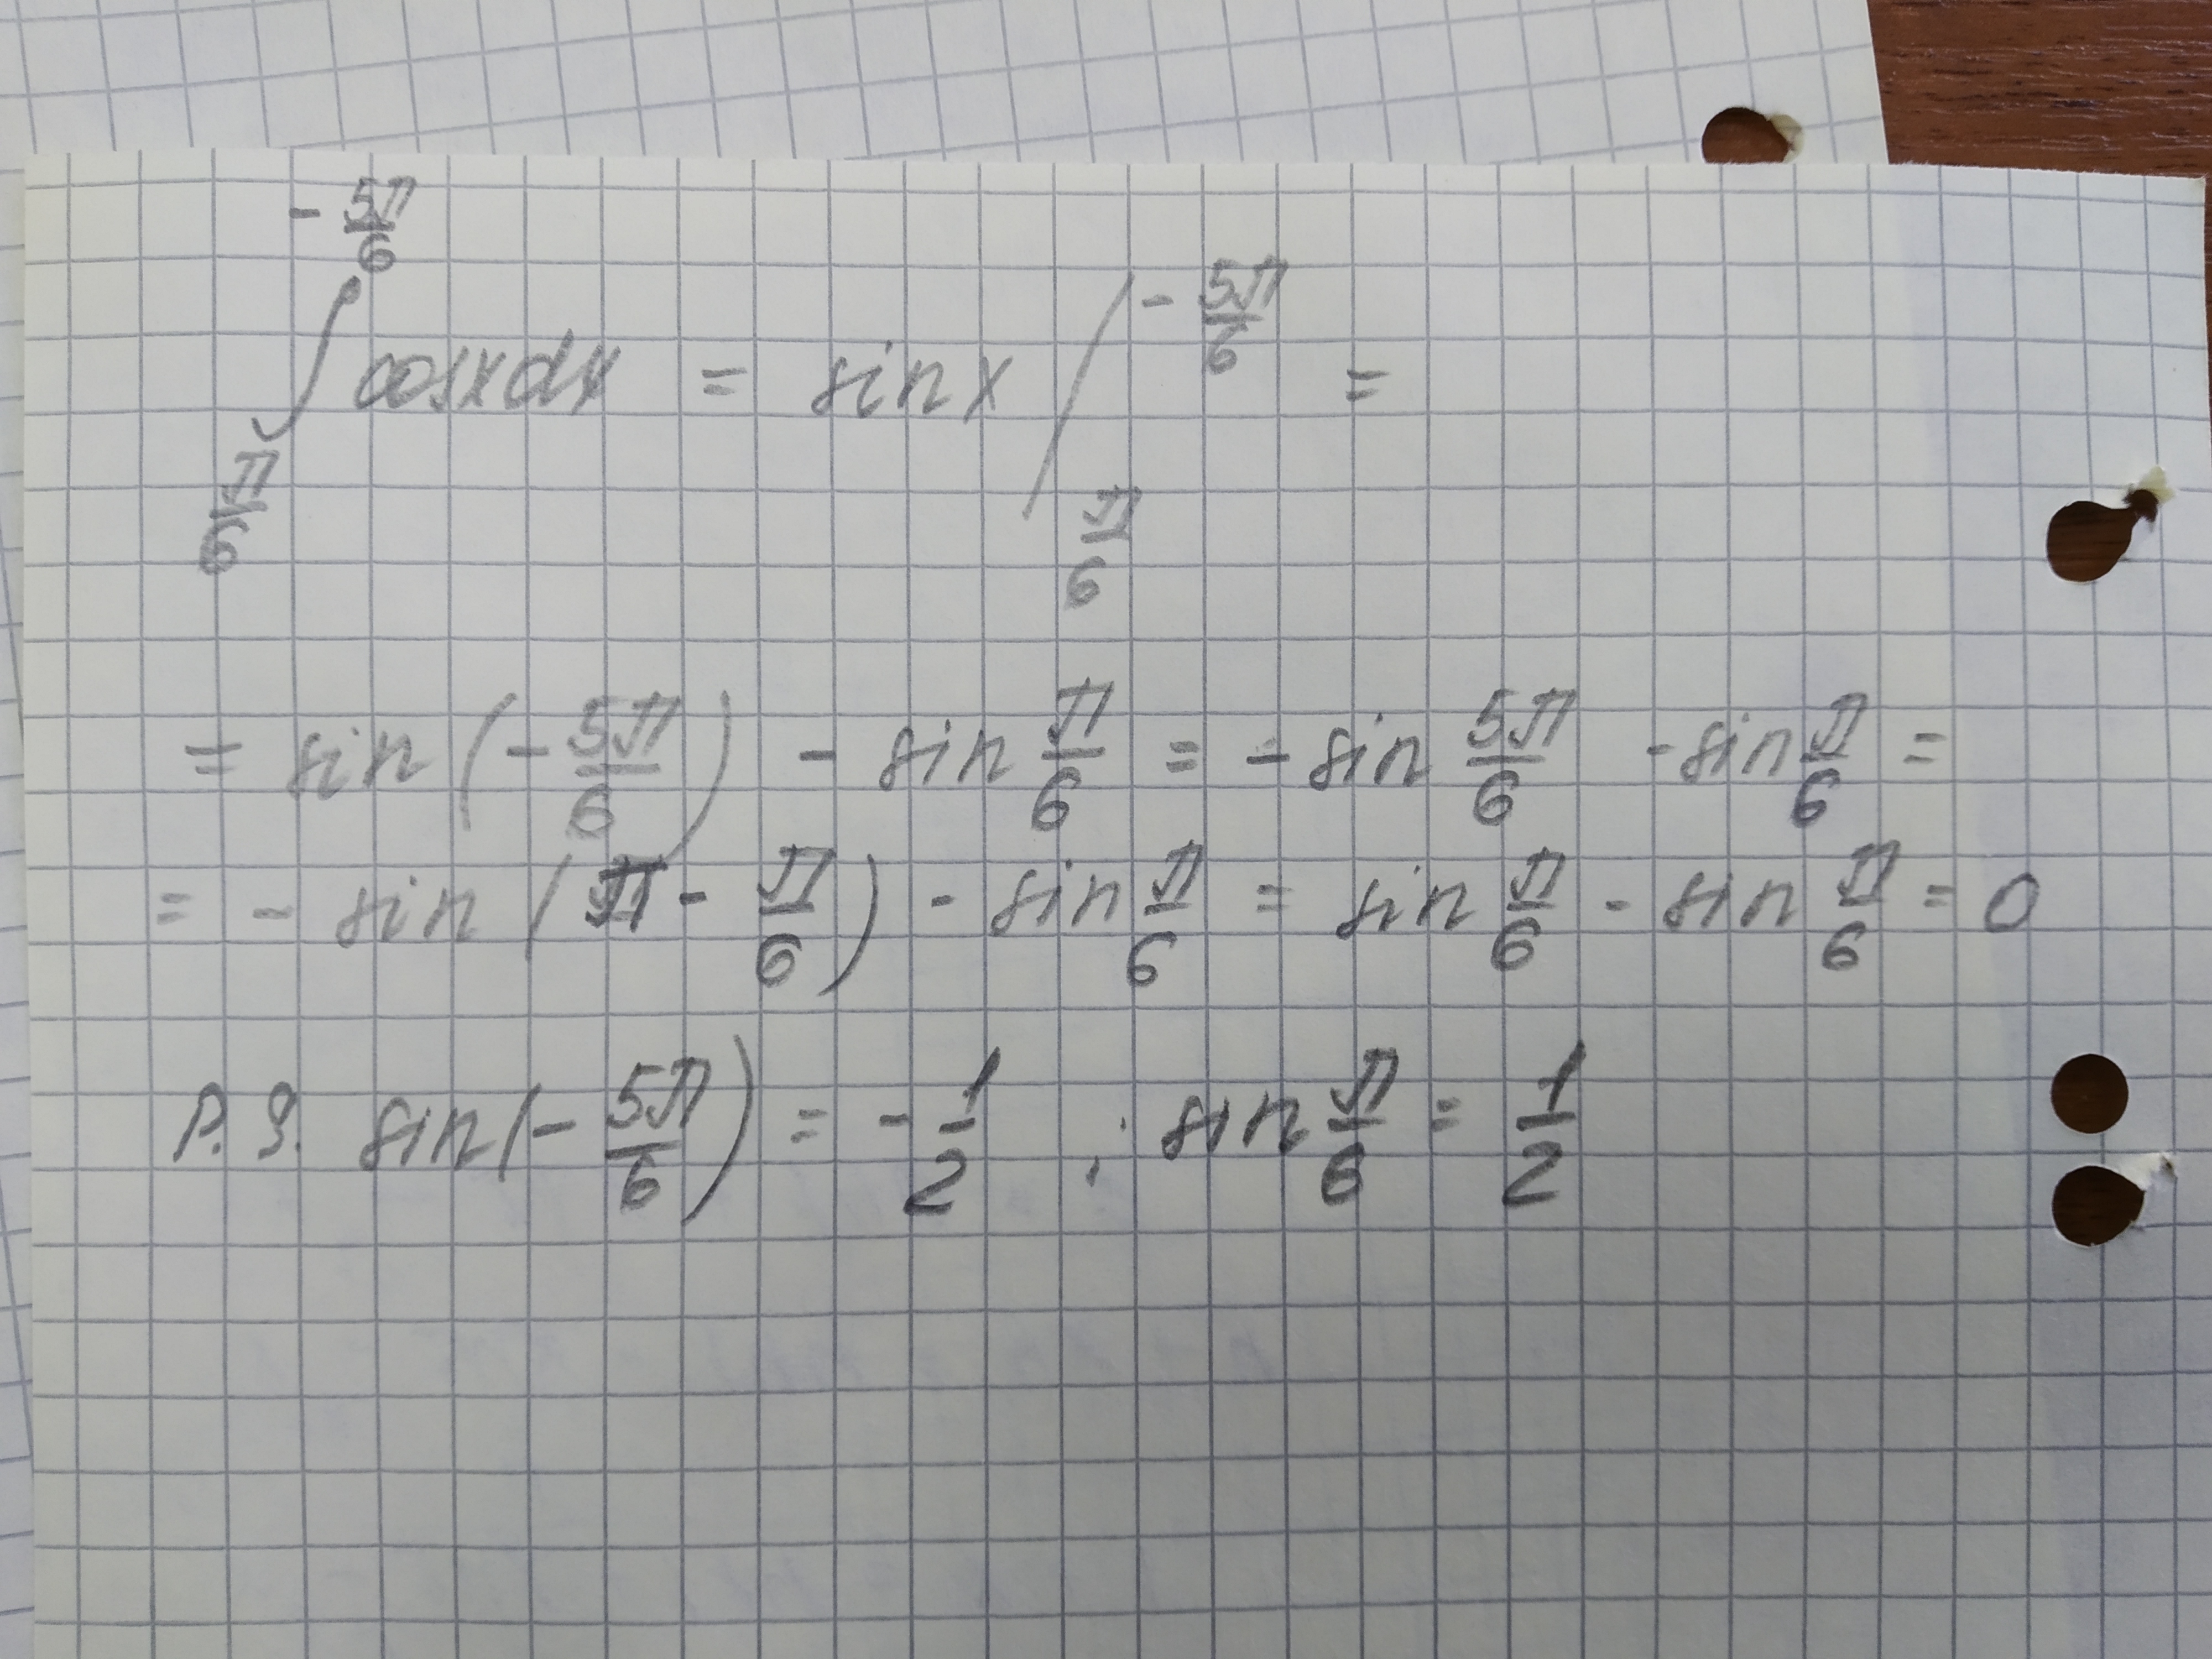 ∫_{π/6}^{-5π/6} cosxdx = sinx /_{π/6}^{-5π/6} =
= sin(-5π/6) - sin π/6 = - sin 5π/6 - sin π/6 =
= - sin(π - π/6) - sin π/6 = sin π/6 - sin π/6 = 0
P.S. sin(-5π/6) = -1/2 ; sin π/6 = 1/2